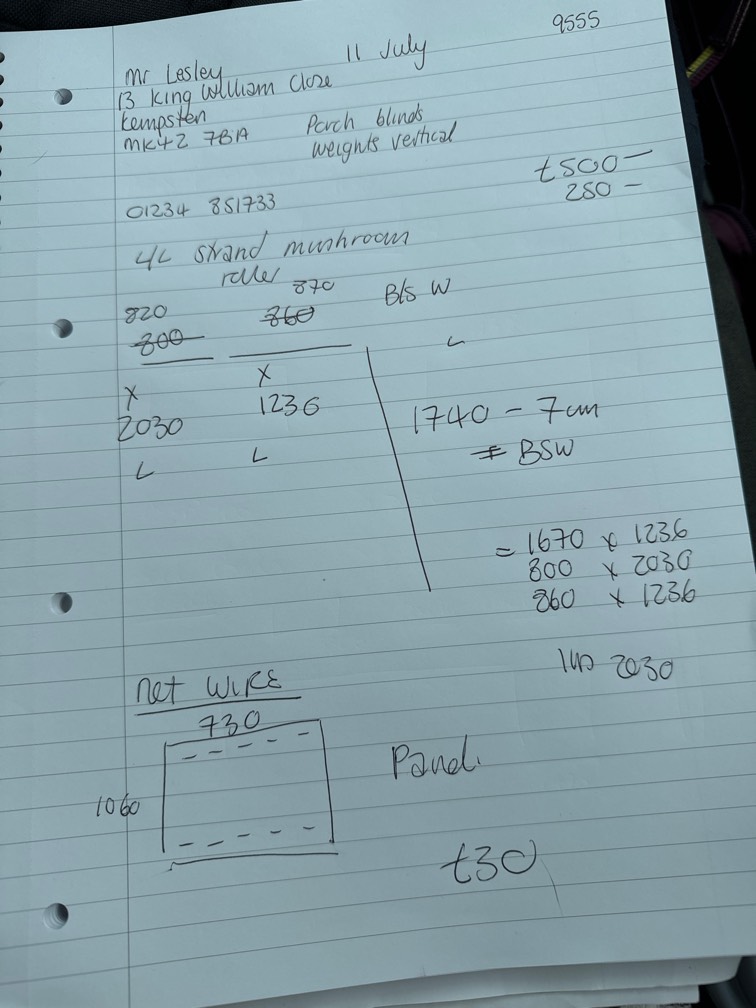 9555
11 July
Mr Lesley
13 King William Close
Kempsten
MK42 7BA
Porch blinds
weights vertical
£500 —
250 —
01234 851733
strand mushroom
roller
820
870
B/S W
800
860
L
X
X
2030
1236
1740 - 7cm
L
L
BSW
= 1670 x 1236
800 x 2030
860 x 1236
2030
net WIRE
730
1060
Panel.
£30